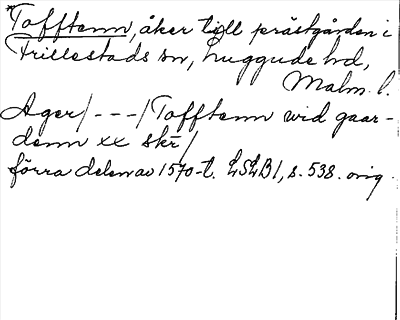 *Tofftenn, åker till prästgården i
Frillestads sn, Luggude hd,
Malm. l.
Ager/---/Tofftenn wid gaar-
denn xx skr/
förra delen av 1570-t. LSLB1, s. 538. orig.